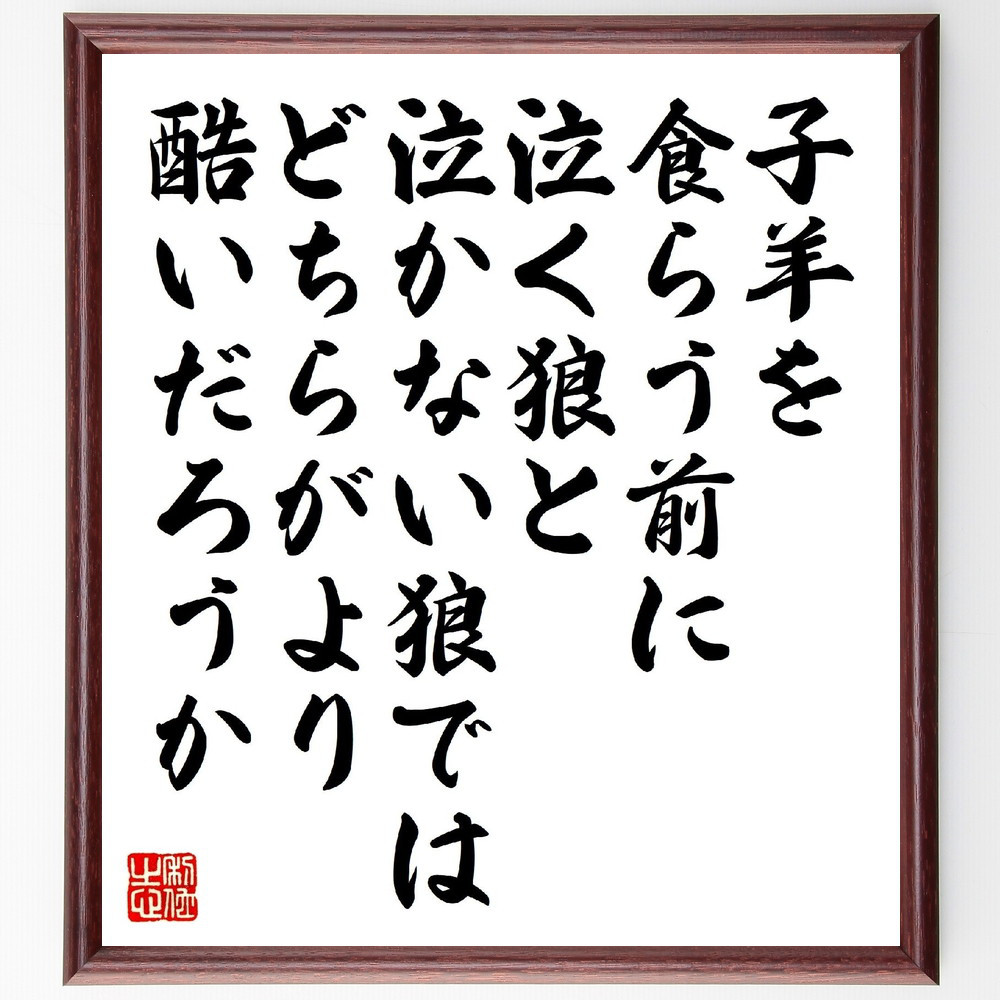 子羊を
食らう前に
泣く狼と
泣かない狼では
どちらがより
酷いだろうか